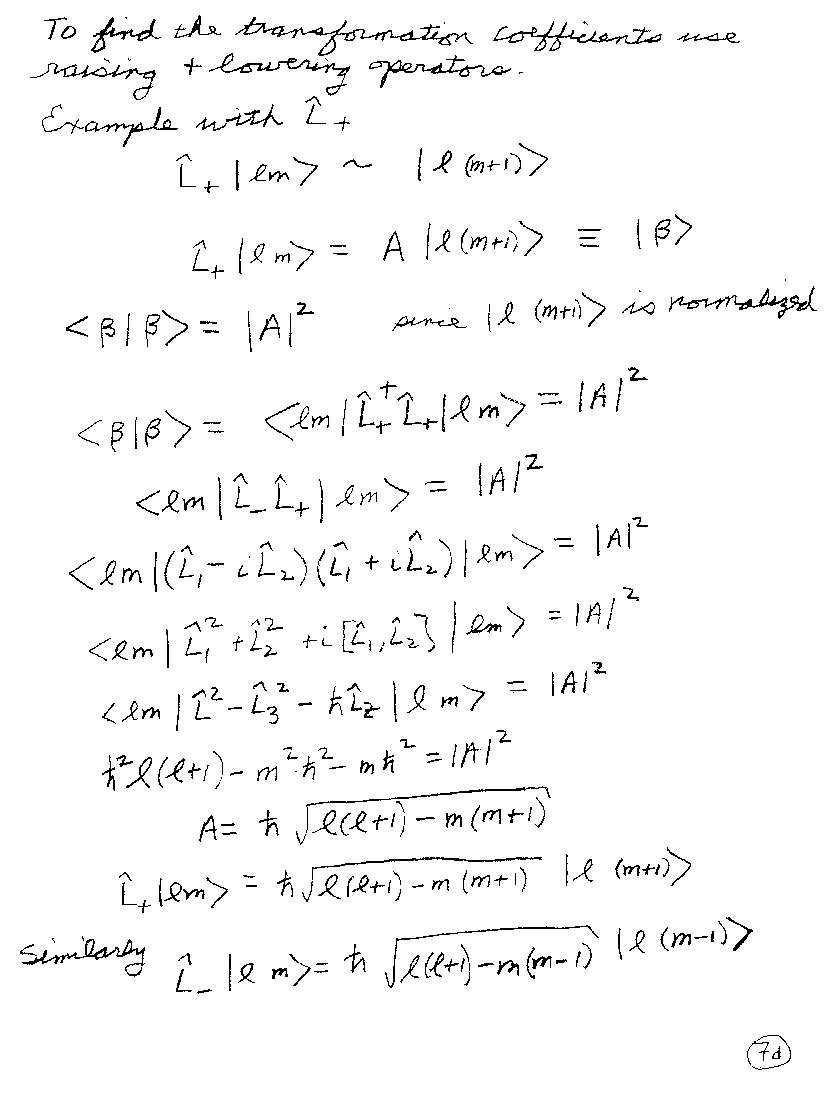 To find the transformation coefficients use
raising + lowering operators.
Example with L̂₊
L̂₊ |lm> ~ |l (m+1)>
L̂₊ |l m> = A |l (m+1)> ≡ |β>
<β|β> = |A|² since |l (m+1)> is normalized
<β|β> = <lm| L̂₊⁺ L̂₊ |l m> = |A|²
<lm| L̂₋ L̂₊ | lm> = |A|²
<lm|(L̂₁ - i L̂₂)(L̂₁ + i L̂₂)| lm> = |A|²
<lm| L̂₁² + L̂₂² + i [L̂₁, L̂₂] | lm> = |A|²
<lm| L̂² - L̂₃² - ħL̂z | l m> = |A|²
ħ² l(l+1) - m²ħ² - mħ² = |A|²
A = ħ √(l(l+1) - m(m+1))
L̂₊ |lm> = ħ √(l(l+1) - m(m+1)) |l (m+1)>
Similarly L̂₋ |l m> = ħ √(l(l+1) - m(m-1)) |l (m-1)>
7d